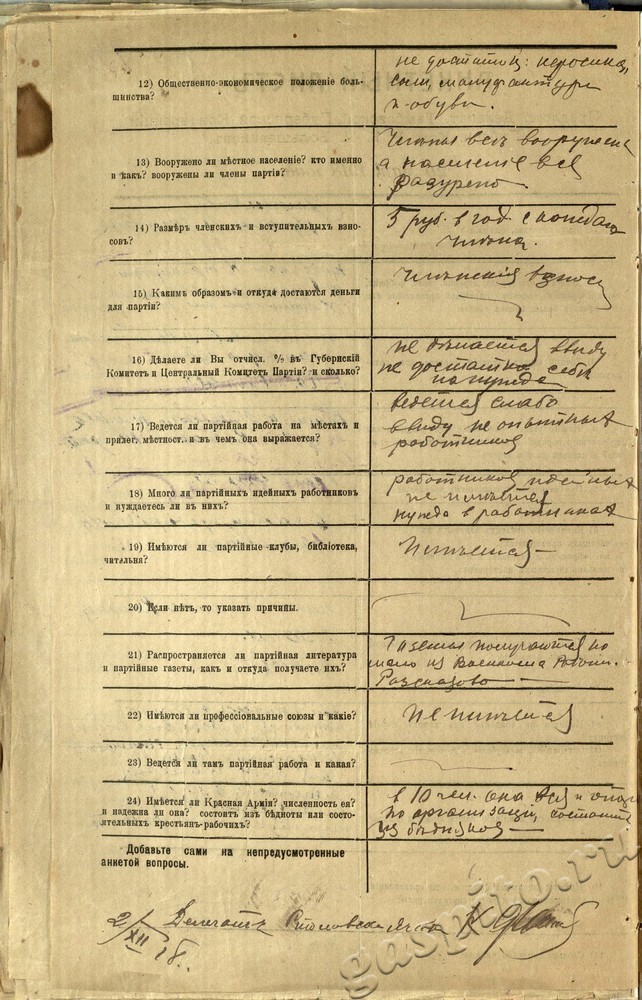 12) Общественно-экономическое положеніе боль-
шинства?
не достатки: керосина,
соли, мануфактуры
и обуви.
13) Вооружено ли мѣстное населеніе? кто именно
и какъ? вооружены ли члены партіи?
а населеніе все
14) Размѣръ членскихъ и вступительныхъ взно-
совъ?
5 руб. в год с каждаго
члена.
15) Какимъ образомъ и откуда достаются деньги
для партіи?
Членския взносы
16) Дѣлаете ли Вы отчисл. % въ Губернскій
Комитетъ и Центральный Комитетъ Партіи? и сколько?
не дѣлается ввиду
не достатка себѣ
на нужда
17) Ведется ли партійная работа на мѣстахъ и
прилег. мѣстност. и въ чемъ она выражается?
ведется слабо
ввиду не опытных
работников
18) Много ли партійныхъ идейныхъ работниковъ
и нуждаетесь ли въ нихъ?
работников идейных
не имѣется
нужда в работниках
19) Имѣются ли партійные клубы, библіотека,
читальня?
Имѣется —
20) Если нѣтъ, то указать причины.
21) Распространяется ли партійная литература
и партійные газеты, какъ и откуда получаете ихъ?
Газеты получаются но
мало из Военкома
Разсказово —
22) Имѣются ли профессіональные союзы и какіе?
не имѣется
23) Ведется ли тамъ партійная работа и какая?
24) Имѣется ли Красная Армія? численность ея?
и надежна ли она? состоитъ изъ бѣдноты или состо-
ятельныхъ крестьянъ-рабочихъ?
в 10 чел. она вся и
по организаціи состоит
из бѣдняков —
Добавьте сами на непредусмотренные
анкетой вопросы.
2/XII 18. Делегатъ
gaspito.ru